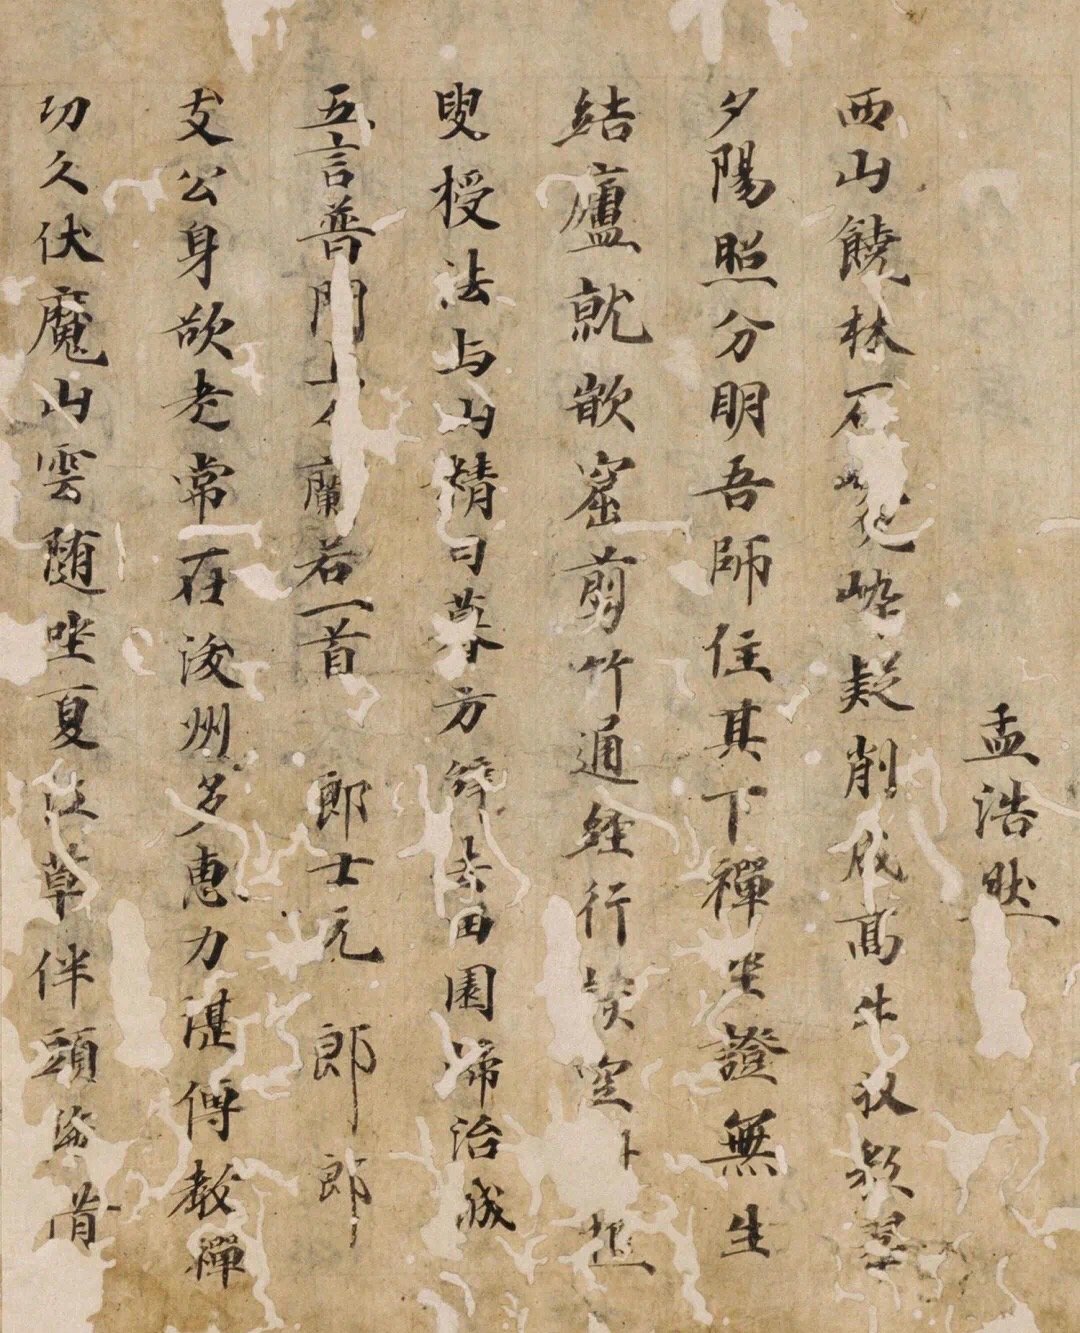 孟浩然
西山饒林石 㟧疑削成高半以
夕陽照分明吾師住其下禪坐證無生
結廬就嵌窟剪竹通經行談空
叟授法与山精日暮方辤 田園歸治城
五言普門上人蘭若一首 郎士元 郎 郎
支公身欲老常在浚州多惠力湛傳教禪
功久伏魔山雲随坐夏 草伴頭 首